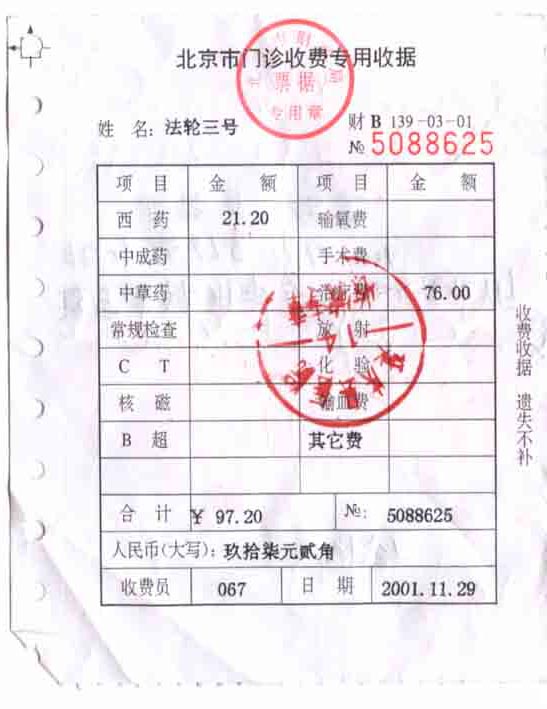 北京市门诊收费专用收据
票据
专用章
姓 名: 法轮三号
财 B 139-03-01
№ 5088625
项 目 金 额 项 目 金 额
西 药 21.20 输氧费
中成药 手术费
中草药 治疗费 76.00
常规检查 放 射
C T 化 验
核 磁 输血费
B 超 其它费
合 计 ¥ 97.20 №: 5088625
人民币(大写): 玖拾柒元贰角
收费员 067 日 期 2001.11.29
收费收据 遗失不补